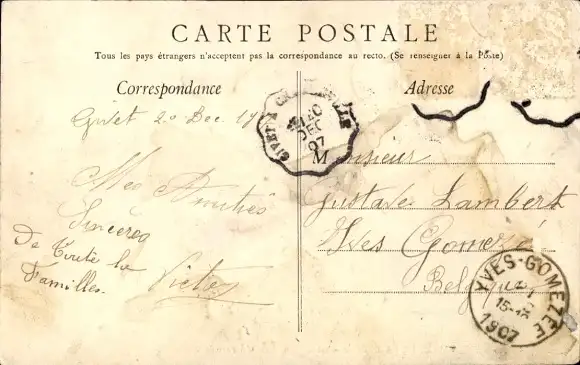 CARTE POSTALE
Tous les pays étrangers n'acceptent pas la correspondance au recto. (Se renseigner à la Poste)
Correspondance
Adresse
Givet 20 Dec 19
Mes Amitiés
Sincères
De Toute la
Familles.
Monsieur
Gustave Lambert
Yves Gomezé
Belgique
GIVET
DEC
07
YVES-GOMEZÉE
15-
1907